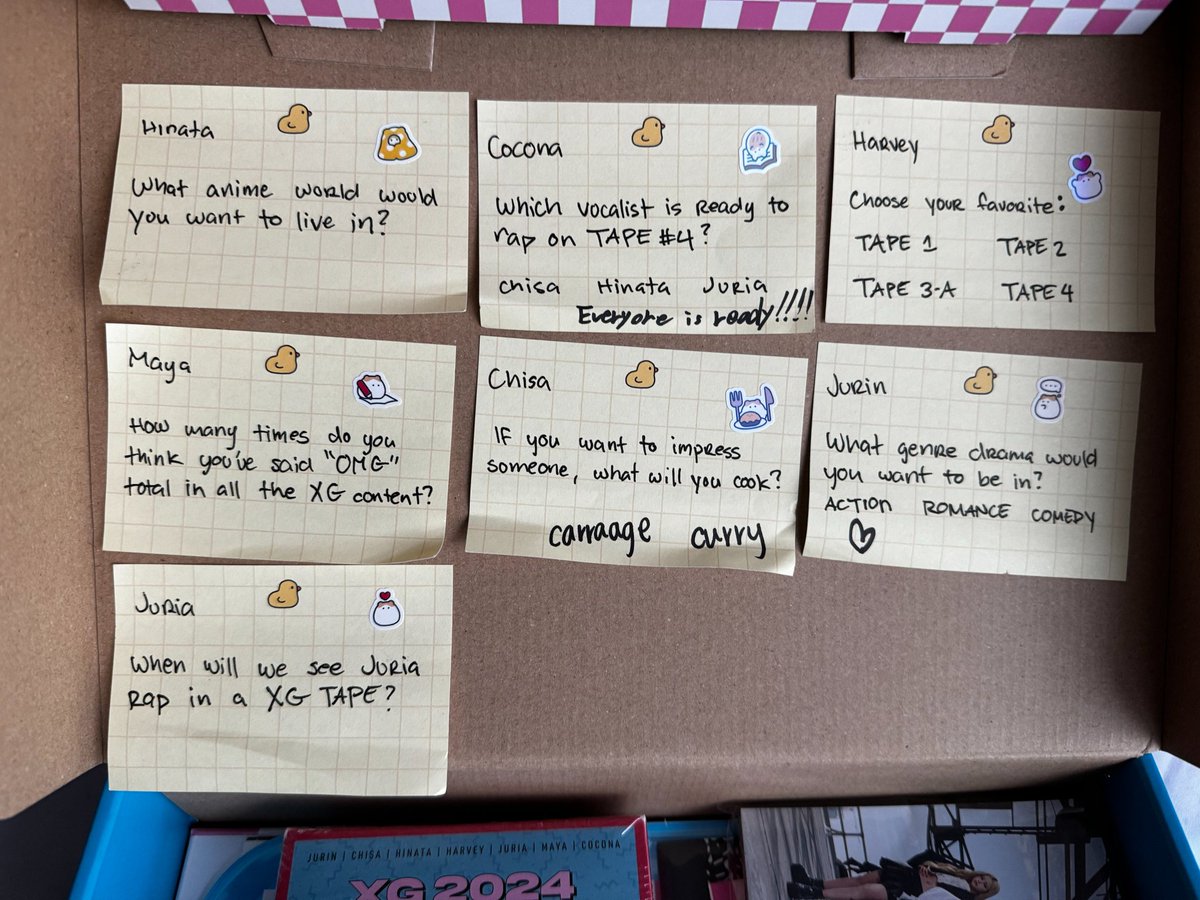 Hinata
What anime world would
you want to live in?
Cocona
Which vocalist is Ready to
rap on TAPE #4?
Chisa Hinata Juria
Everyone is ready!!!!
Harvey
Choose your favorite:
TAPE 1 TAPE 2
TAPE 3-A TAPE 4
Maya
How many times do you
think you've said "OMG"
total in all the XG content?
Chisa
If you want to impress
someone, what will you cook?
carraage curry
Jurin
What genre drama would
you want to be in?
ACTION ROMANCE COMEDY
Juria
When will we see Juria
Rap in a XG TAPE?
JURIN | CHISA | HINATA | HARVEY | JURIA | MAYA | COCONA
XG 2024